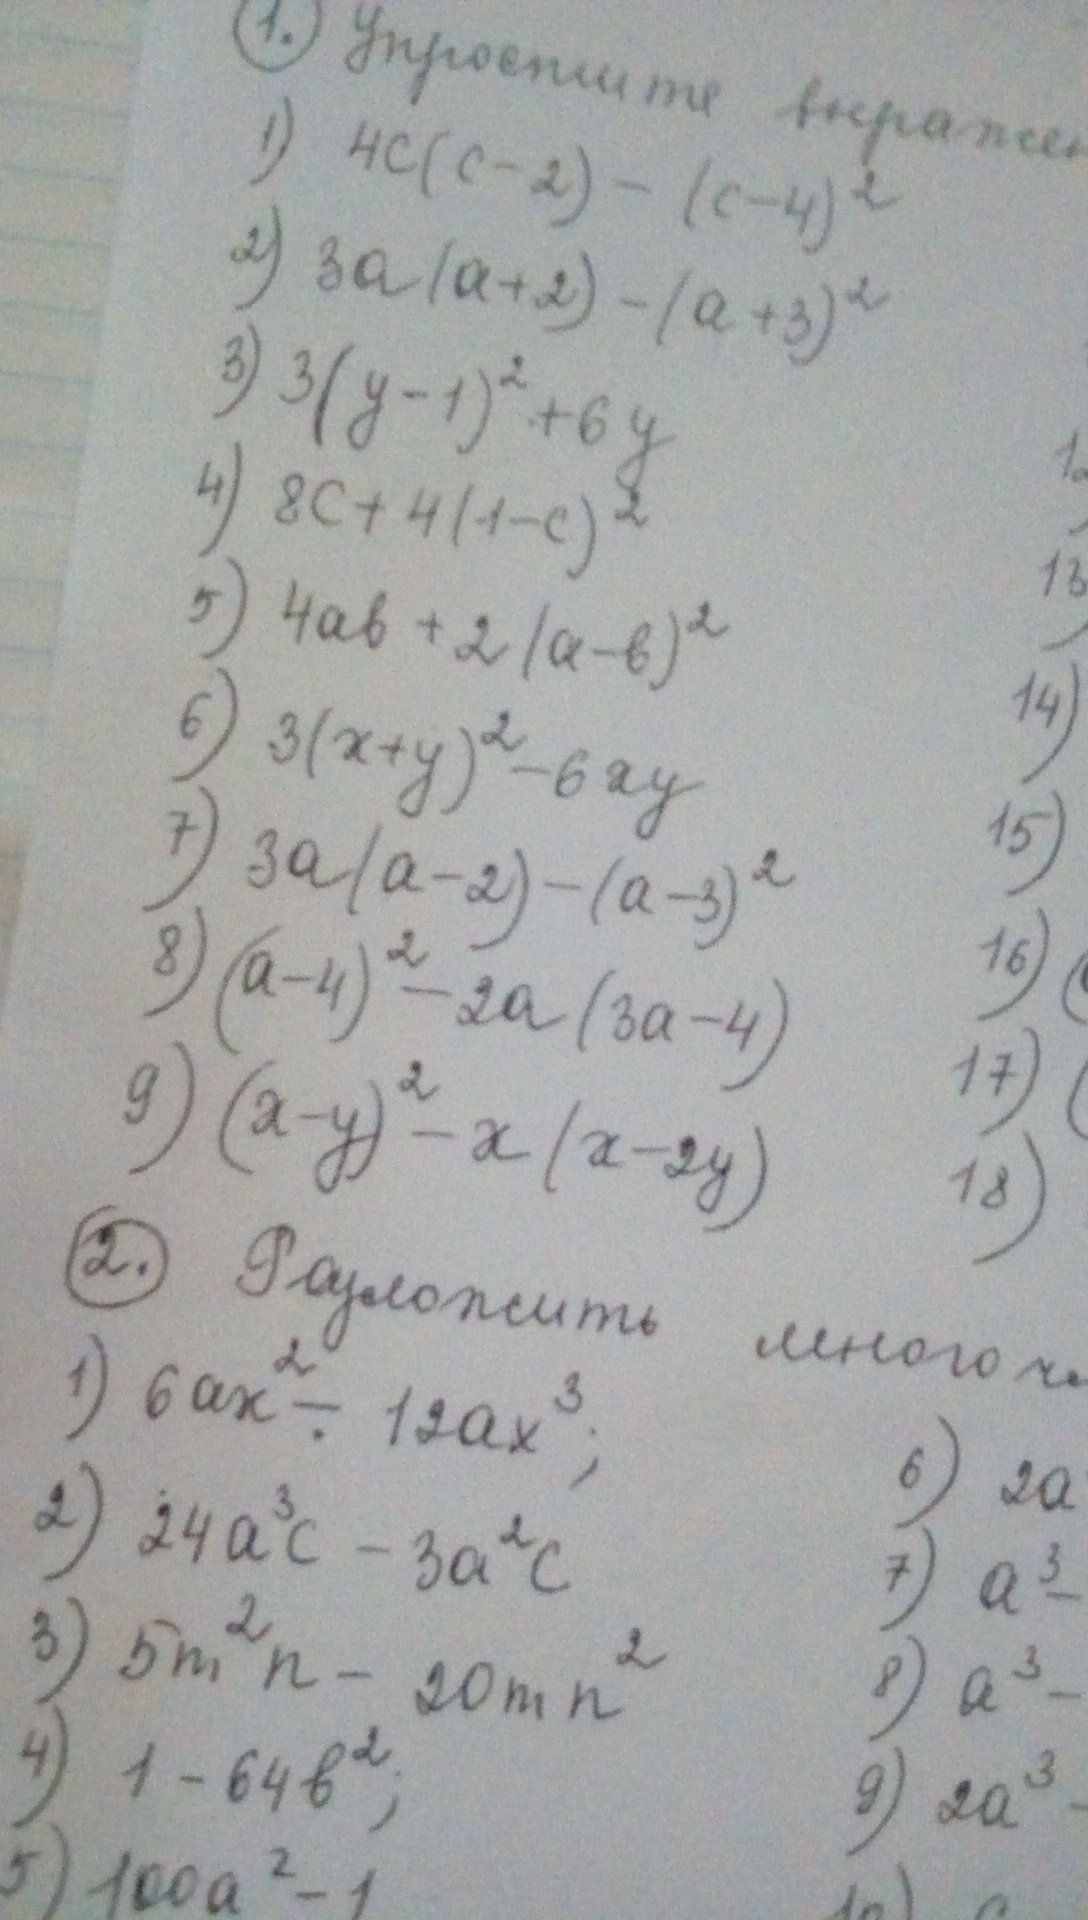 1. Упростите выражен
1) 4c(c-2) - (c-4)²
2) 3a(a+2) - (a+3)²
3) 3(y-1)² + 6y
4) 8c + 4(1-c)²
5) 4ab + 2(a-b)²
6) 3(x+y)² - 6xy
7) 3a(a-2) - (a-3)²
8) (a-4)² - 2a(3a-4)
9) (x-y)² - x(x-2y)
13)
14)
15)
16) (
17) (
18)
2. Разложить многоч
1) 6ax² - 12ax³;
2) 24a³c - 3a²c
3) 5m²n - 20mn²
4) 1 - 64b²;
5) 100a² - 1
6) 2a
7) a³ -
8) a³ -
9) 2a³ -
10)